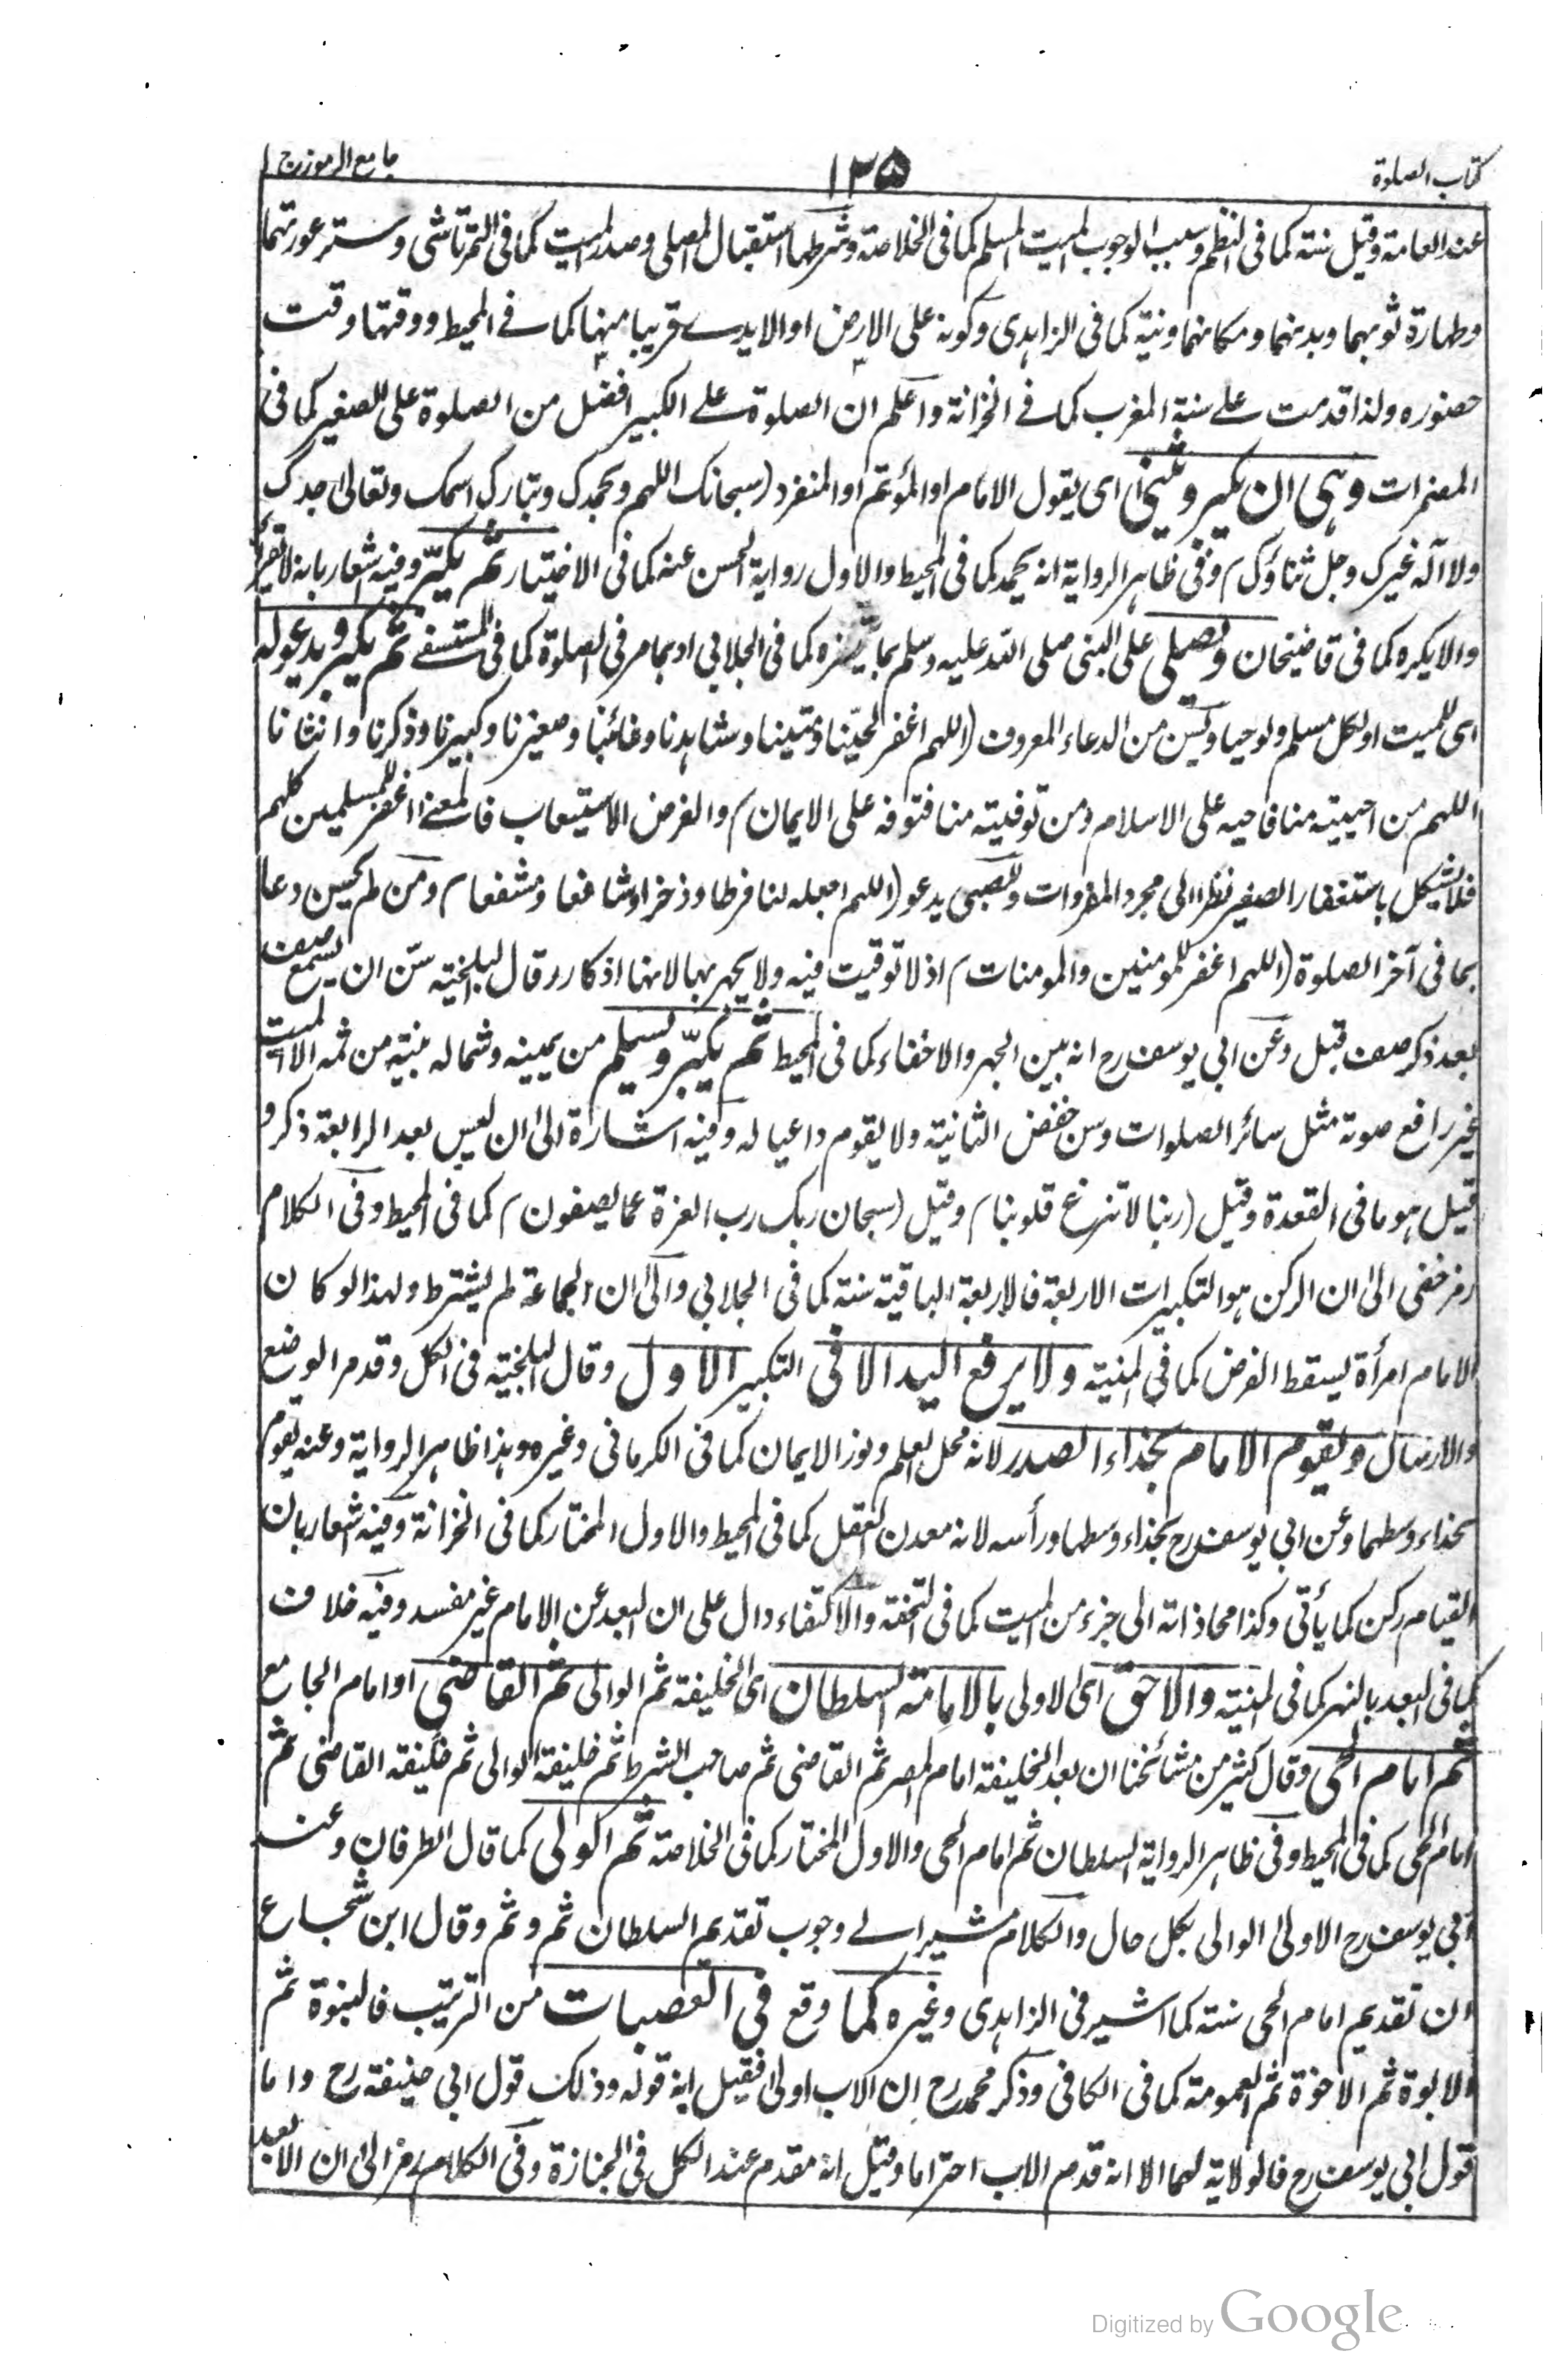 كتاب الصلوة
١٢٥
جامع الرموز ج ١
عند العامة وقيل سنة كما فى النظم وسبب الوجوب الميت المسلم كما فى الخلاصة وشرطها استقبال المصلى وصدر الميت كما فى التمرتاشى وستر عورتهما
وطهارة ثوبهما وبدنهما ومكانهما ونية كما فى الزاهدى وكونه على الارض او الايدے قريبا منها كما فے المحيط ووقتها وقت
حضوره ولذا قدمت علے سنة المغرب كما فے الخزانة واعلم ان الصلوة علے الكبير افضل من الصلوة على الصغير كما فى
المضمرات وهى ان يكبر ويثنى اى يقول الامام او المؤتم او المنفرد (سبحانك اللهم وبحمدك وتبارك اسمك وتعالى جدك
ولا آله غيرك وجل ثناؤك) وفى ظاهر الرواية انه يحمد كما فى المحيط والاول رواية الحسن عنه كما فى الاختيار ثم يكبّر وفيه اشعار بانه لا تقرأ
والا يكره كما فى قاضيخان ويصلى على النبى صلى الله عليه وسلم بما يحضره كما فى الجلابي او بما مر فى الصلوة كما فى المستصفے ثم يكبر ويدعو له
اى للميت او لكل مسلم ولو حيا وحسن من الدعاء المعروف (اللهم اغفر لحيّنا وميتنا وشاهدنا وغائبنا وصغيرنا وكبيرنا وذكرنا وانثانا
اللهم من احييته منا فاحيه على الاسلام ومن توفيته منا فتوفه على الايمان) والغرض الاستيعاب فالمعنے اغفر للمسلمين كلهم
فلا يشكل باستغفار الصغير نظرا الى مجرد المفردات وللصبى يدعو (اللهم اجعله لنا فرطا وذخرا وشافعا ومشفعا) ومن لم يحسن دعا
بما فى آخر الصلوة (اللهم اغفر للمومنين والمومنات) اذ لا توقيت فيه ولا يجهر بها لانها اذكار وقال البلخية سنّ ان يسمع صف
بعد ذكر صف قبل وعن ابي يوسف رح انه بين الجهر والاخفاء كما فى المحيط ثم يكبّر ويسلم من يمينه وشماله بنية من ثمه الا الميت
غير رافع صوته مثل سائر الصلوات وسن خفض الثانية ولا يقوم داعيا له وفيه اشارة الى ان ليس بعد الرابعة ذكر و
قيل هو ما فى القعدة وقيل (ربنا لا تزغ قلوبنا) وقيل (سبحان ربك رب العزة عما يصفون) كما فى المحيط وفى الكلام
رمز خفى الى ان الركن هو التكبيرات الاربعة فالاربعة الباقية سنة كما فى الجلابي والى ان الجماعة لم يشترط ولهذا لو كان
الامام امرأة يسقط الفرض كما فى المنية ولا يرفع اليد الا فى التكبير الاول وقال البلخية فى الكل وقدم الوضع
والارسال ويقوم الامام بحذاء الصدر لانه محل العلم ونور الايمان كما فى الكرمانى وغيره وهذا ظاهر الرواية وعنه يقوم
بحذاء وسطهما وعن ابي يوسف رح بحذاء وسطها ورأسه لانه معدن العقل كما فى المحيط والاول المختار كما فى الخزانة وفيه اشعار بان
القيام ركن كما يأتى وكذا محاذاته الى جزء من الميت كما فى التحفة والاكتفاء دال على ان البعد عن الامام غير مفسد وفيه خلاف
كما فى البعد بالنهر كما فى المنية والاحق اى الاولى بالامامة السلطان اى الخليفة ثم الوالى ثم القاضى او امام الجامع
ثم امام الحى وقال كثير من مشائخنا ان بعد الخليفة امام المصر ثم القاضى ثم صاحب الشرط ثم خليفة الوالى ثم خليفة القاضى ثم
امام الحى كما فى المحيط وفى ظاهر الرواية السلطان ثم امام الحى والاول المختار كما فى الخلاصة ثم الولى كما قال الطرفان وعند
ابي يوسف رح الاولى الوالى بكل حال والكلام مشير الے وجوب تقديم السلطان ثم وثم وقال ابن شجاع
ان تقديم امام الحى سنة كما اشير فى الزاهدى وغيره كما وقع فى العصبات من الترتيب فالبنوة ثم
الابوة ثم الاخوة ثم العمومة كما فى الكافى وذكر محمد رح ان الاب اولى فقيل انه قوله وذلك قول ابي حنيفة رح واما
قول ابي يوسف رح فالولاية لهما الا انه قدم الاب احتراما وقيل انه مقدم عند الكل فى الجنازة وفى الكلام رمز الى ان الابعد
Digitized by Google